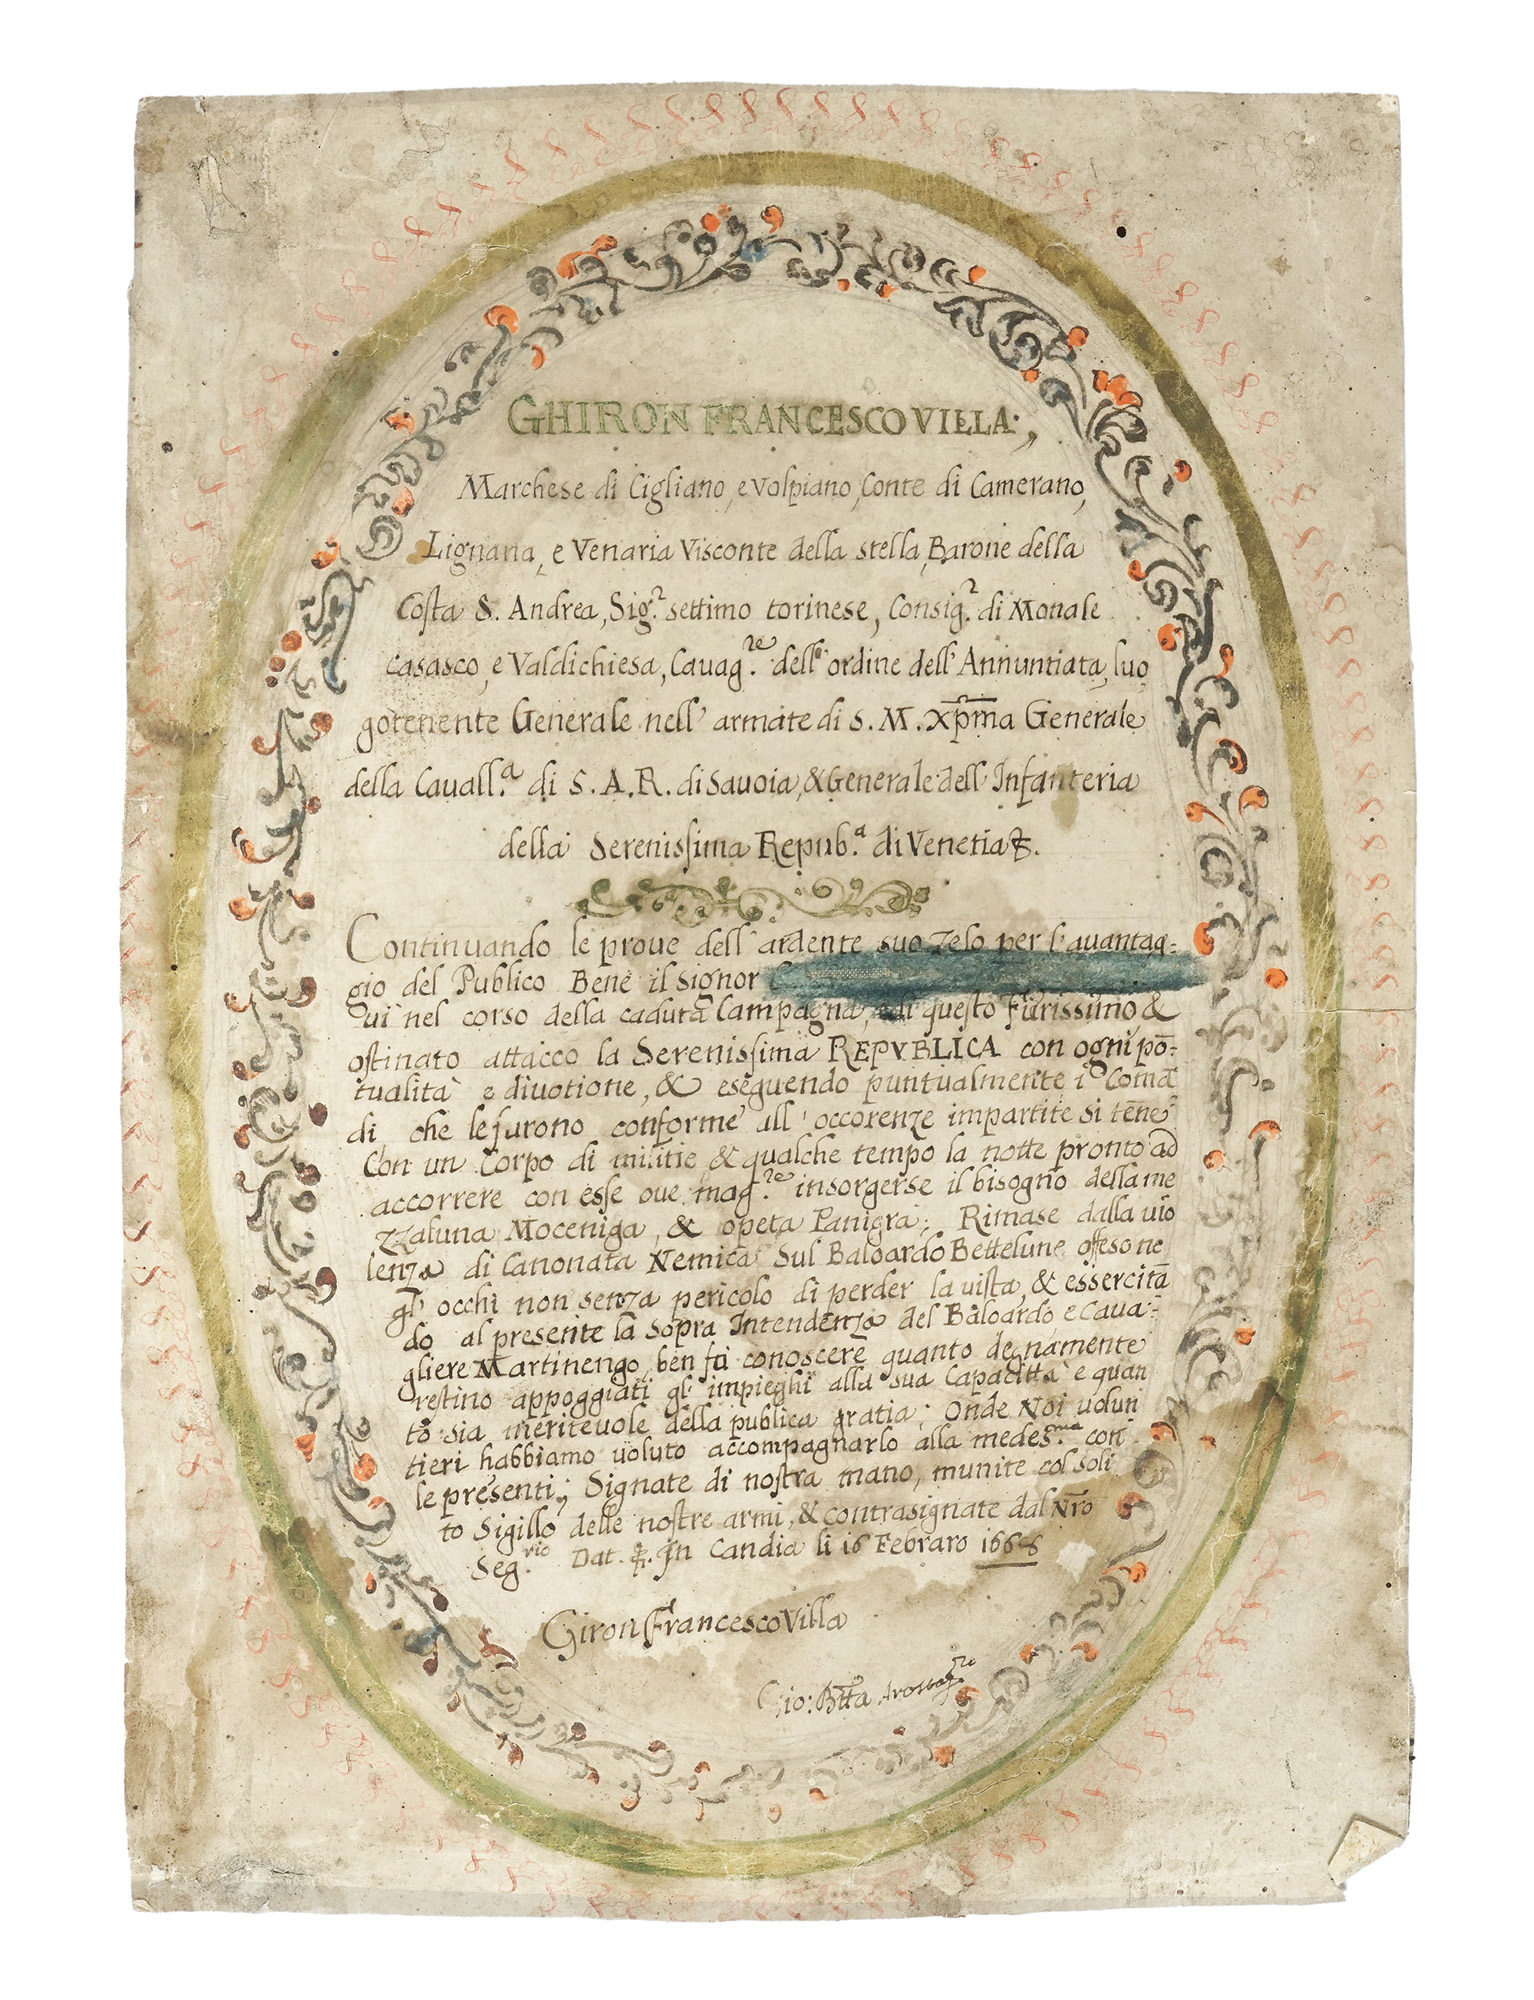 GHIRON FRANCESCO VILLA.,
Marchese di Cigliano, e Volpiano, Conte di Camerano,
Lignana, e Venaria Visconte della stella, Barone della
Costa S. Andrea, Sig.r settimo torinese, Consig.r di Monale
Casasco, e Valdichiesa, Cauag.re dell'ordine dell'Annuntiata, luo
gotenente Generale nell'armate di S. M. xp̄ma Generale
della Cauall.a di S. A. R. di Sauoia, & Generale dell'Infanteria
della Serenissima Repub.a di Venetia &.
Continuando le proue dell'ardente suo zelo per l'auantag=
gio del Publico Bene il Signor
qui nel corso della caduta Campagna, e di questo Furissimo, &
ostinato attacco la Serenissima REPVBLICA con ogni pō=
tualità e diuotione, & eseguendo puntualmente i Comā
di, che le furono conforme all'occorenze impartite si tēne
Con un Corpo di militie, & qualche tempo la notte pronto ad
accorrere con esse oue mag.re insorgerse il bisogno della me
zzaluna Moceniga, & opeta Panigra; Rimase dalla uio
lenza di Canonata Nemica Sul Baloardo Bettelune offeso ne
gl'occhi non senza pericolo di perder la uista, & essercitā
do al presente la Sopra Intendenza del Baloardo e Caua=
gliere Martinengo, ben fà conoscere quanto degnamente
restino appoggiati gl'impieghi alla sua Capacittà e quan
to sia meriteuole della publica gratia; Onde Noi uolun
tieri habbiamo uoluto accompagnarlo alla medes.ma con
le presenti; Signate di nostra mano, munite col soli
to Sigillo delle nostre armi, & contrasignate dal Nr̄o
Seg.rio Dat. In Candia li 16 Febraro 1668
Giron Francesco Villa
Gio: Btt̄a